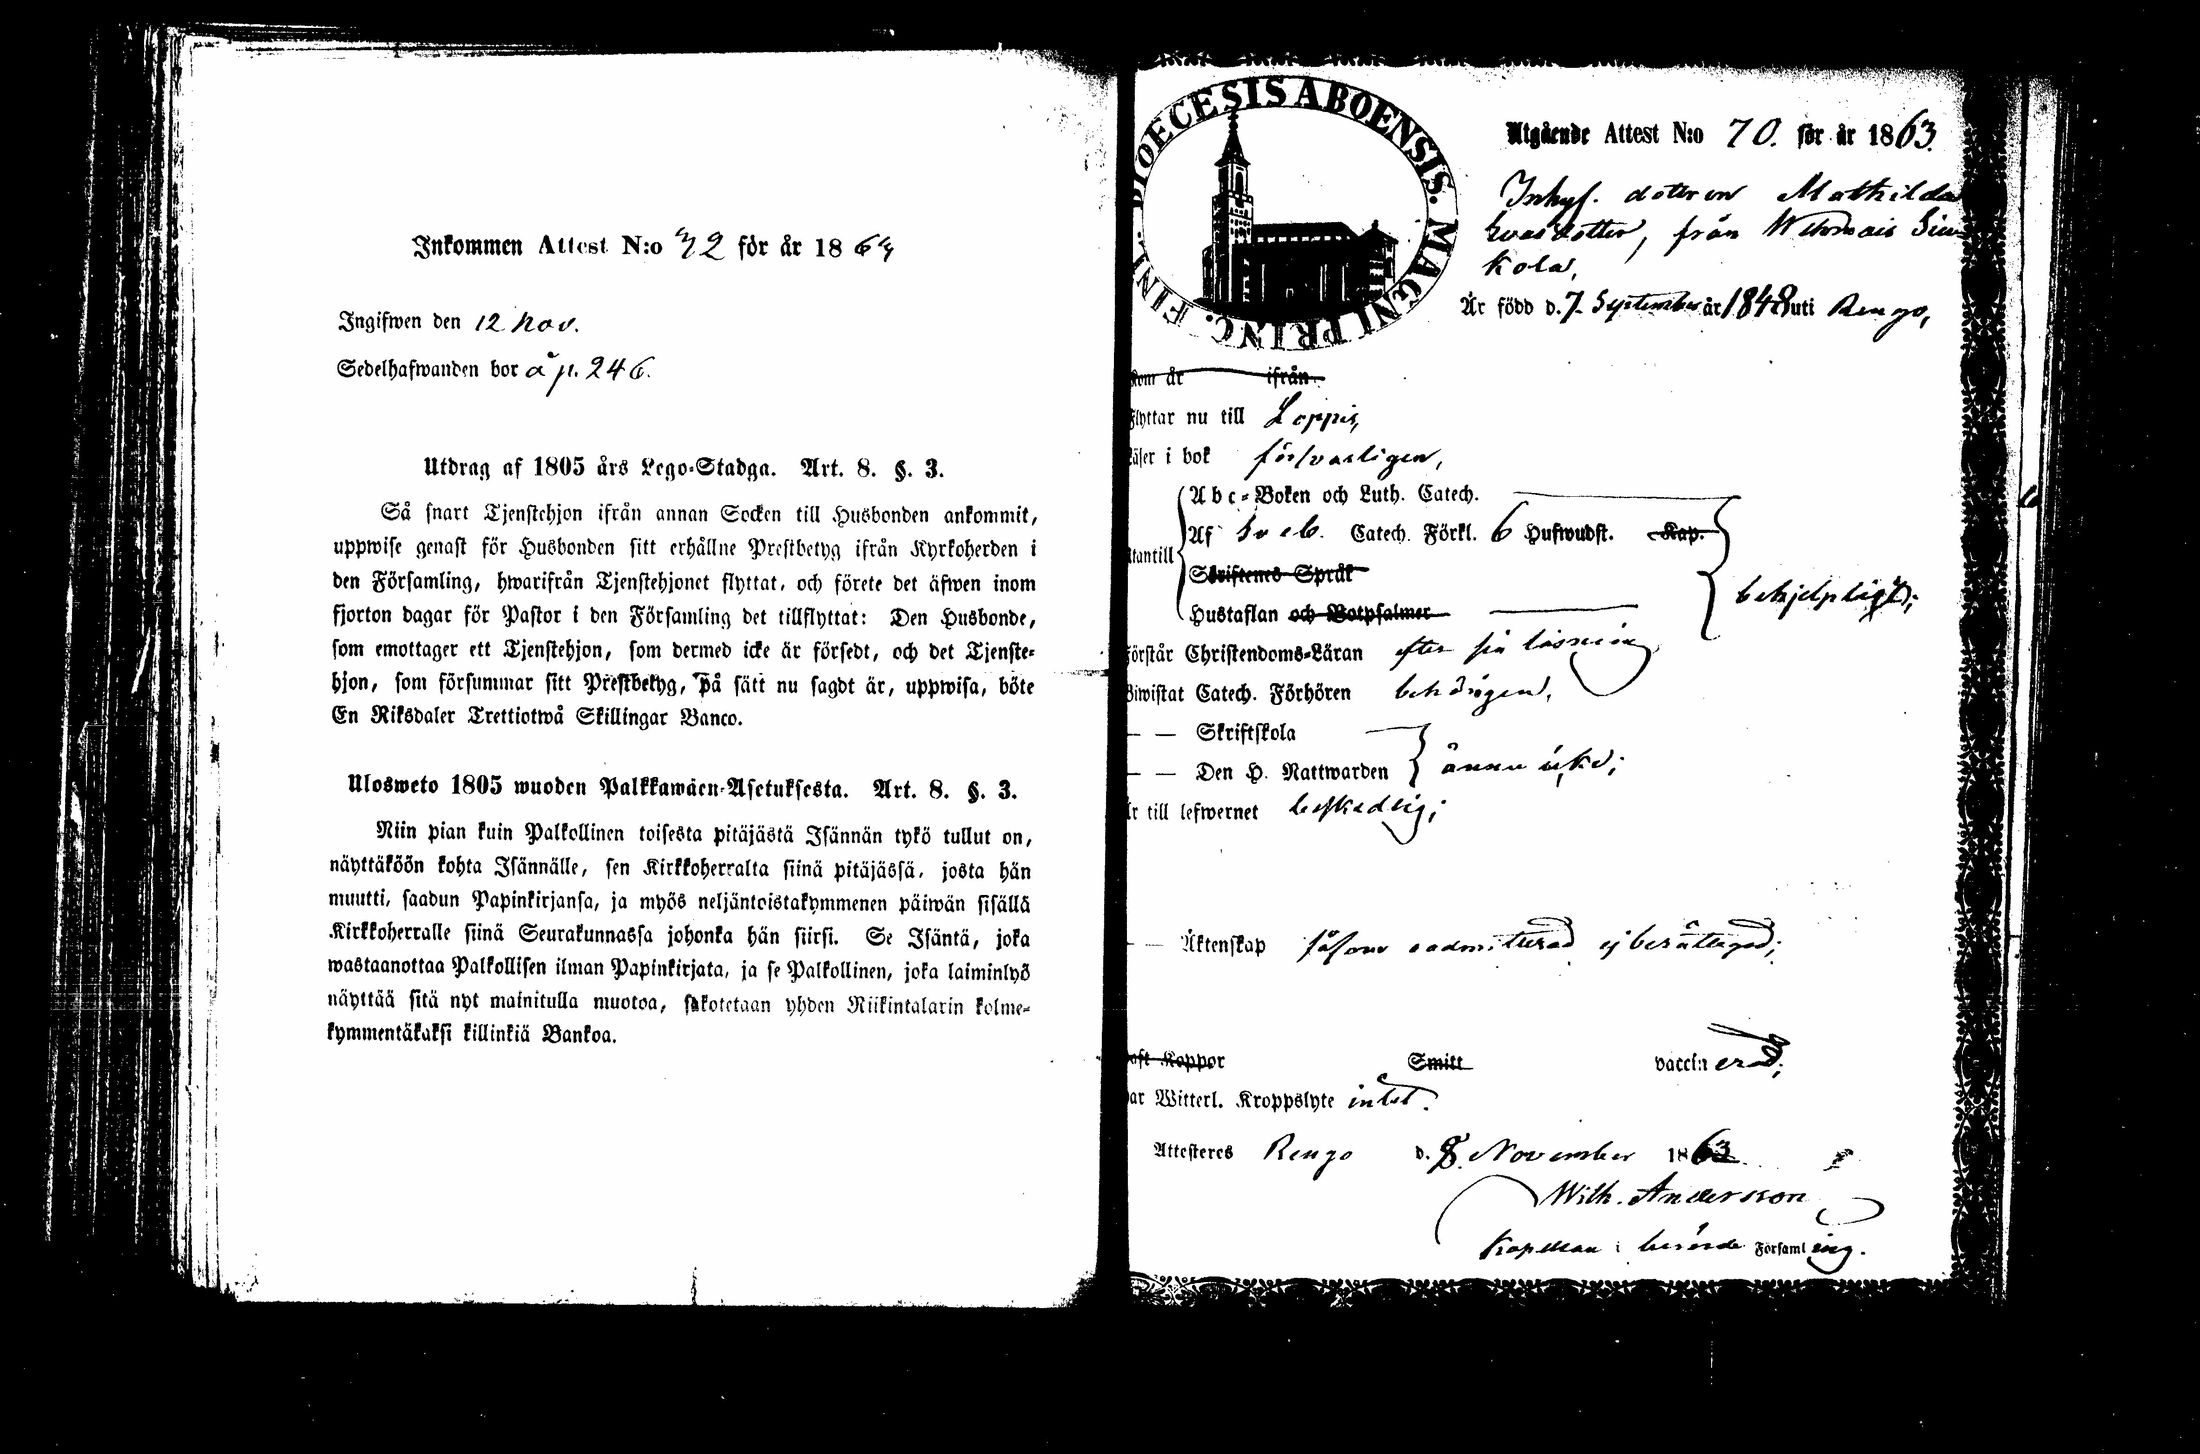 Inkommen Attest N:o 72 för år 1863
Ingifwen den 12 Nov.
Sedelhafwanden bor å p. 246.
Utdrag af 1805 års Lego-Stadga. Art. 8. §. 3.
Så snart Tjenstehjon ifrån annan Socken till Husbonden ankommit,
uppwise genast för Husbonden sitt erhållne Prestbetyg ifrån Kyrkoherden i
den Församling, hwarifrån Tjenstehjonet flyttat, och förete det äfwen inom
fjorton dagar för Pastor i den Församling det tillflyttat: Den Husbonde,
som emottager ett Tjenstehjon, som dermed icke är försedt, och det Tjenste-
hjon, som försummar sitt Prestbetyg, på sätt nu sagdt är, uppwisa, böte
En Riksdaler Trettiotwå Skillingar Banco.
Ulosweto 1805 wuoden Palkkawäen-Asetuksesta. Art. 8. §. 3.
Niin pian kuin Palkollinen toisesta pitäjästä Isännän tykö tullut on,
näyttäköön kohta Isännälle, sen Kirkkoherralta siinä pitäjässä, josta hän
muutti, saadun Papinkirjansa, ja myös neljäntoistakymmenen päiwän sisällä
Kirkkoherralle siinä Seurakunnassa johonka hän siirsi. Se Isäntä, joka
wastaanottaa Palkollisen ilman Papinkirjata, ja se Palkollinen, joka laiminlyö
näyttää sitä nyt mainitulla muotoa, sakotetaan yhden Riikintalarin kolme-
kymmentäkaksi killinkiä Bankoa.
DIOECESIS ABOENSIS. MAGNI PRINC. FINL.
Utgående Attest N:o 70. för år 1863.
Inhys. dotteren Mathilda
Evasdotter, från Wehmais Siu-
kola,
Är född d. 7 September år 1848 uti Rengo,
kom år ifrån
Flyttar nu till Loppis,
Läser i bok försvarligen,
Abc-Boken och Luth. Catech.
Utantill Af Sveb. Catech. Förkl. 6 Hufwudst. Kap.
Skriftenes Språk
Hustaflan och Botpsalmer behjelpligt;
Förstår Christendoms-Läran efter sin läsning
Biwistat Catech. Förhören behörigen,
— — Skriftskola
— — Den H. Nattwarden ännu icke;
Är till lefwernet beskedlig;
— — Äktenskap såsom oadmitterad ej berättigad;
haft Koppor Smitt vaccinerad;
har Witterl. Kroppslyte intet.
Attesteres Rengo d. 8. November 1863.
Wilh. Andersson
Kapellan i berörde Församling.